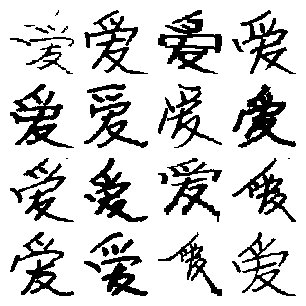 爱爱爱爱
爱爱爱爱
爱爱爱爱
爱爱爱爱